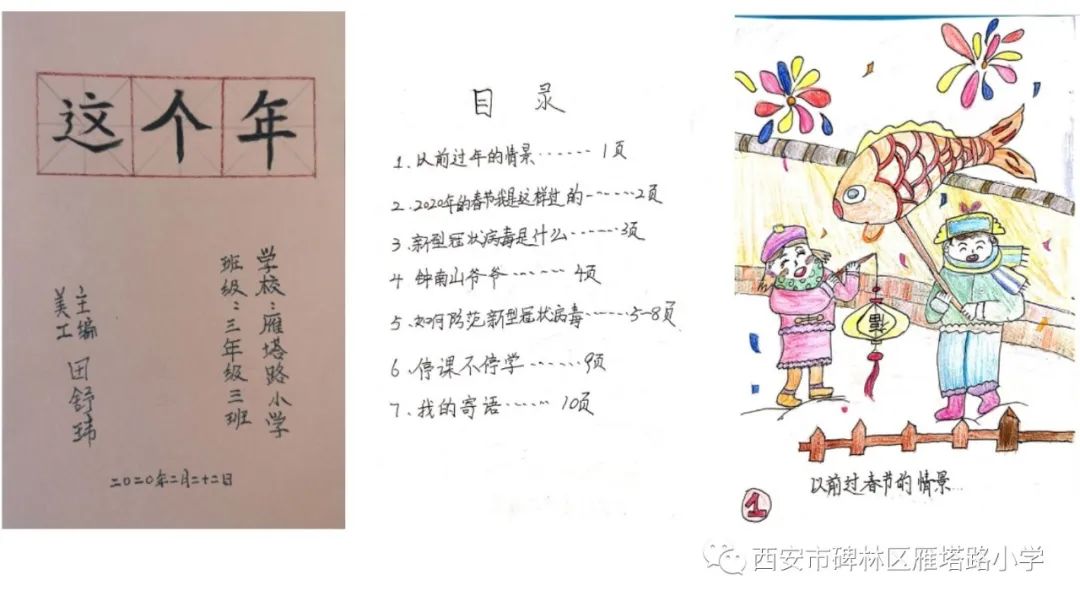 这个年
学校：雁塔路小学
班级：三年级三班
主编
美工
田舒玮
二〇二〇年二月二十二日
目 录
1、以前过年的情景······1页
2、2020年的春节我是这样过的······2页
3、新型冠状病毒是什么······3页
4 钟南山爷爷······4页
5、如何防范新型冠状病毒······5-8页
6、停课不停学······9页
7、我的寄语······10页
福
以前过春节的情景...
1
西安市碑林区雁塔路小学